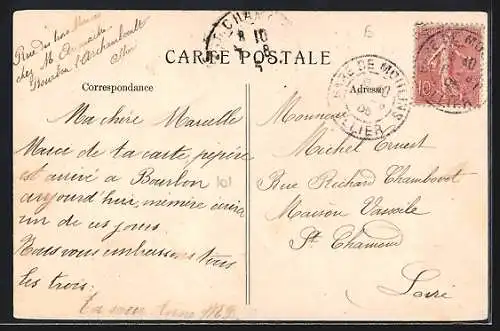 Rue des trois Maures
chez M.
Bourbon l'Archambault
Allier
CHAMOND
8 10
7 - 8
CARTE POSTALE
Correspondance
Adresse
GARE DE MOULINS
ALLIER
10
Ma chère Marcelle
Merci de ta carte, pépère
est arrivé à Bourbon
aujourd'hui, mémère
un de ces jours.
Nous vous embrassons tous
les trois.
Ta sœur
Monsieur
Michel Ernest
Rue Richard Chambovet
Maison
St Chamond
Loire